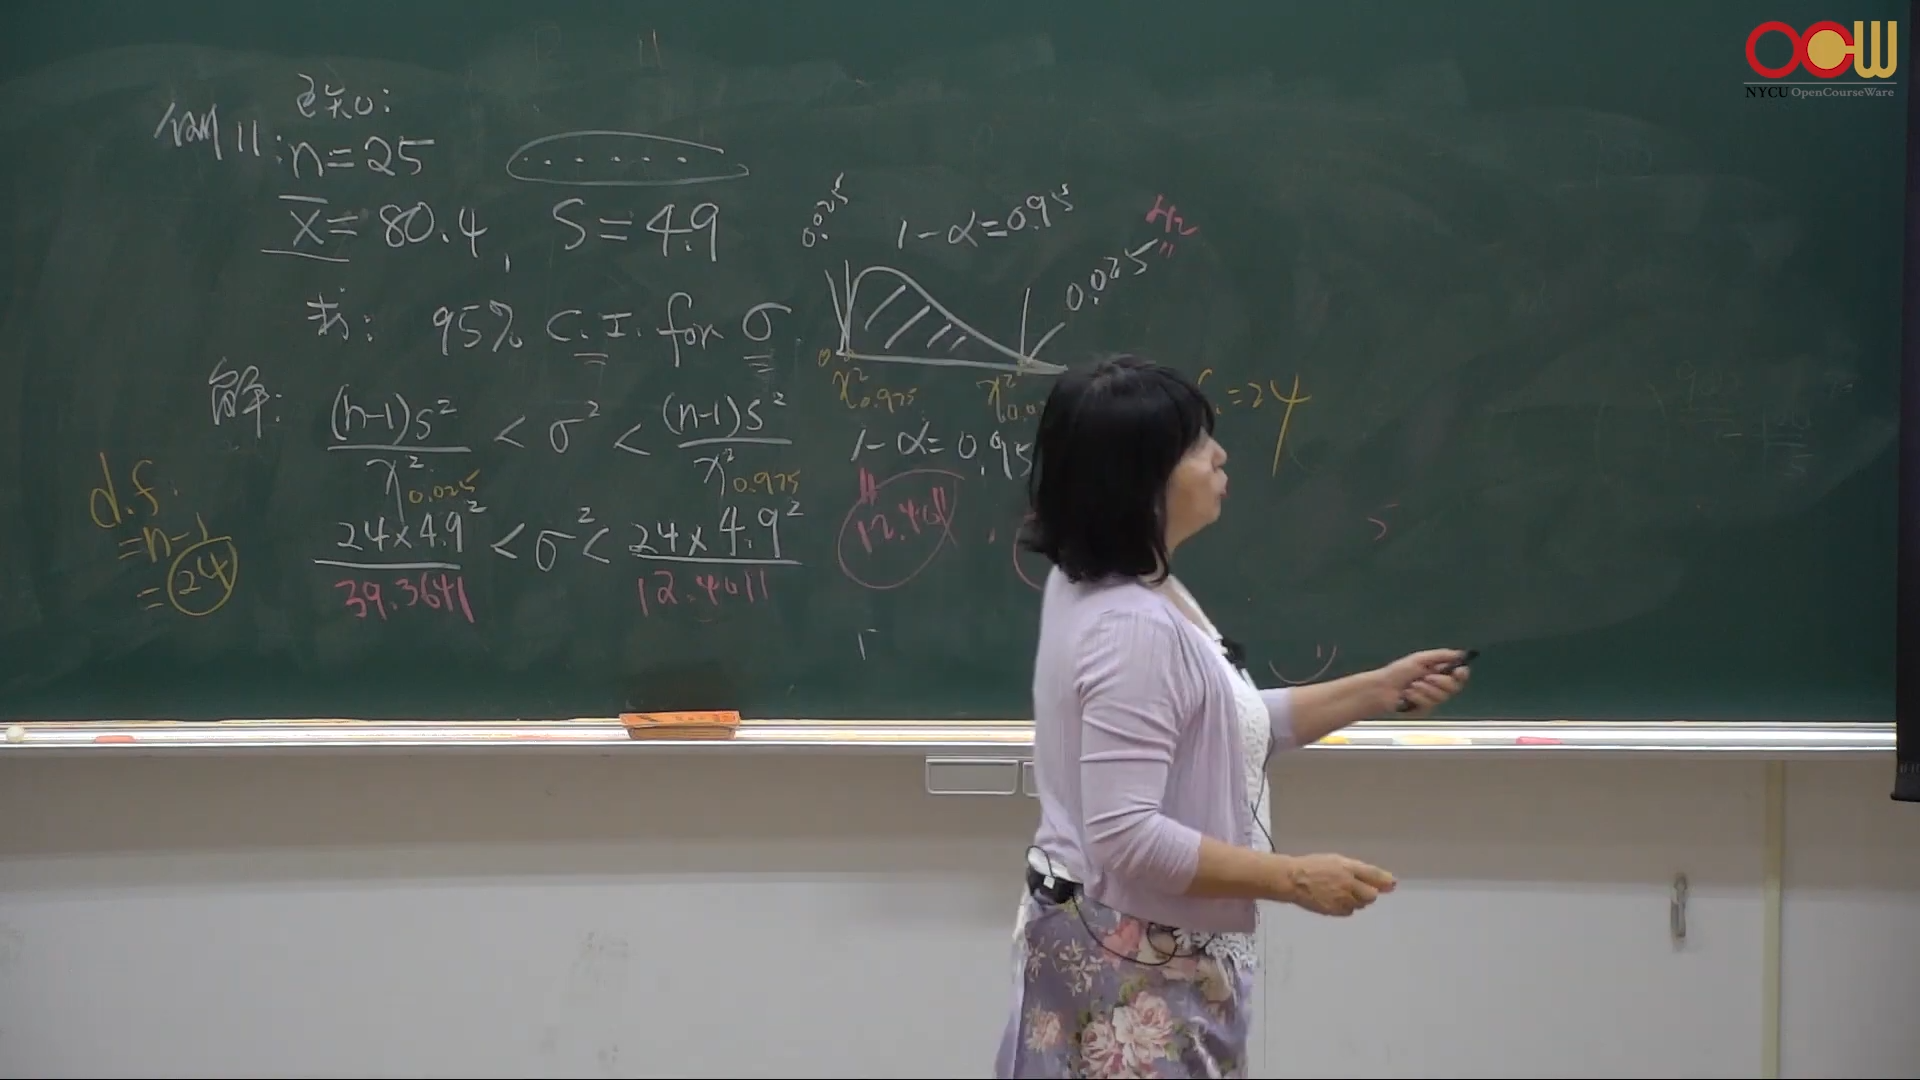 OCW
NYCU OpenCourseWare
例11:
已知:
n=25
x̄=80.4, S=4.9
求: 95% C.I. for σ
解:
(n-1)S²/χ²0.025 < σ² < (n-1)S²/χ²0.975
24×4.9²/39.3641 < σ² < 24×4.9²/12.4011
d.f.
=n-1
=24
0.025
1-α=0.95
0.025
0
χ²0.975
=24
1-α=0.95